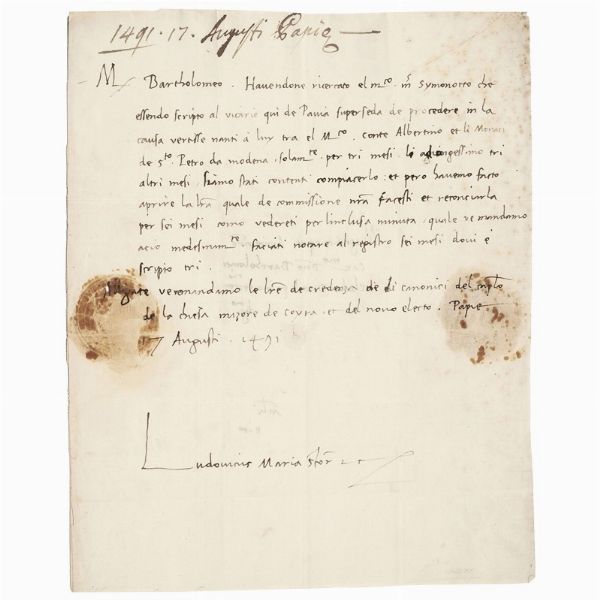 1491 · 17 · Augusti Papie
M Bartholomeo . Havendone ricercato el m.co m. Symonotto che
essendo scripto al vicario qui de Pavia superseda de procedere in la
causa vertisse nanti a luy tra el M.co conte Albertino et li Monaci
de S.to Petro da modena , solam.te per tri mesi lo adiongessimo tri
altri mesi . Siamo stati contenti compiacerlo : et pero havemo facto
aprire la lra quale de commissione nra facesti et reconciarla
per sei mesi como vedereti per linclusa minuta , quale ve mandamo
acio medesimam.te faciati notare al registro sei mesi dovi è
scripto tri .
Alligate ve mandamo le lre de credenza de li canonici del caplo
de la chiesa mazore de et del novo electo . Papie
17 Augusti . 1491
Ludovicus Maria Sfor